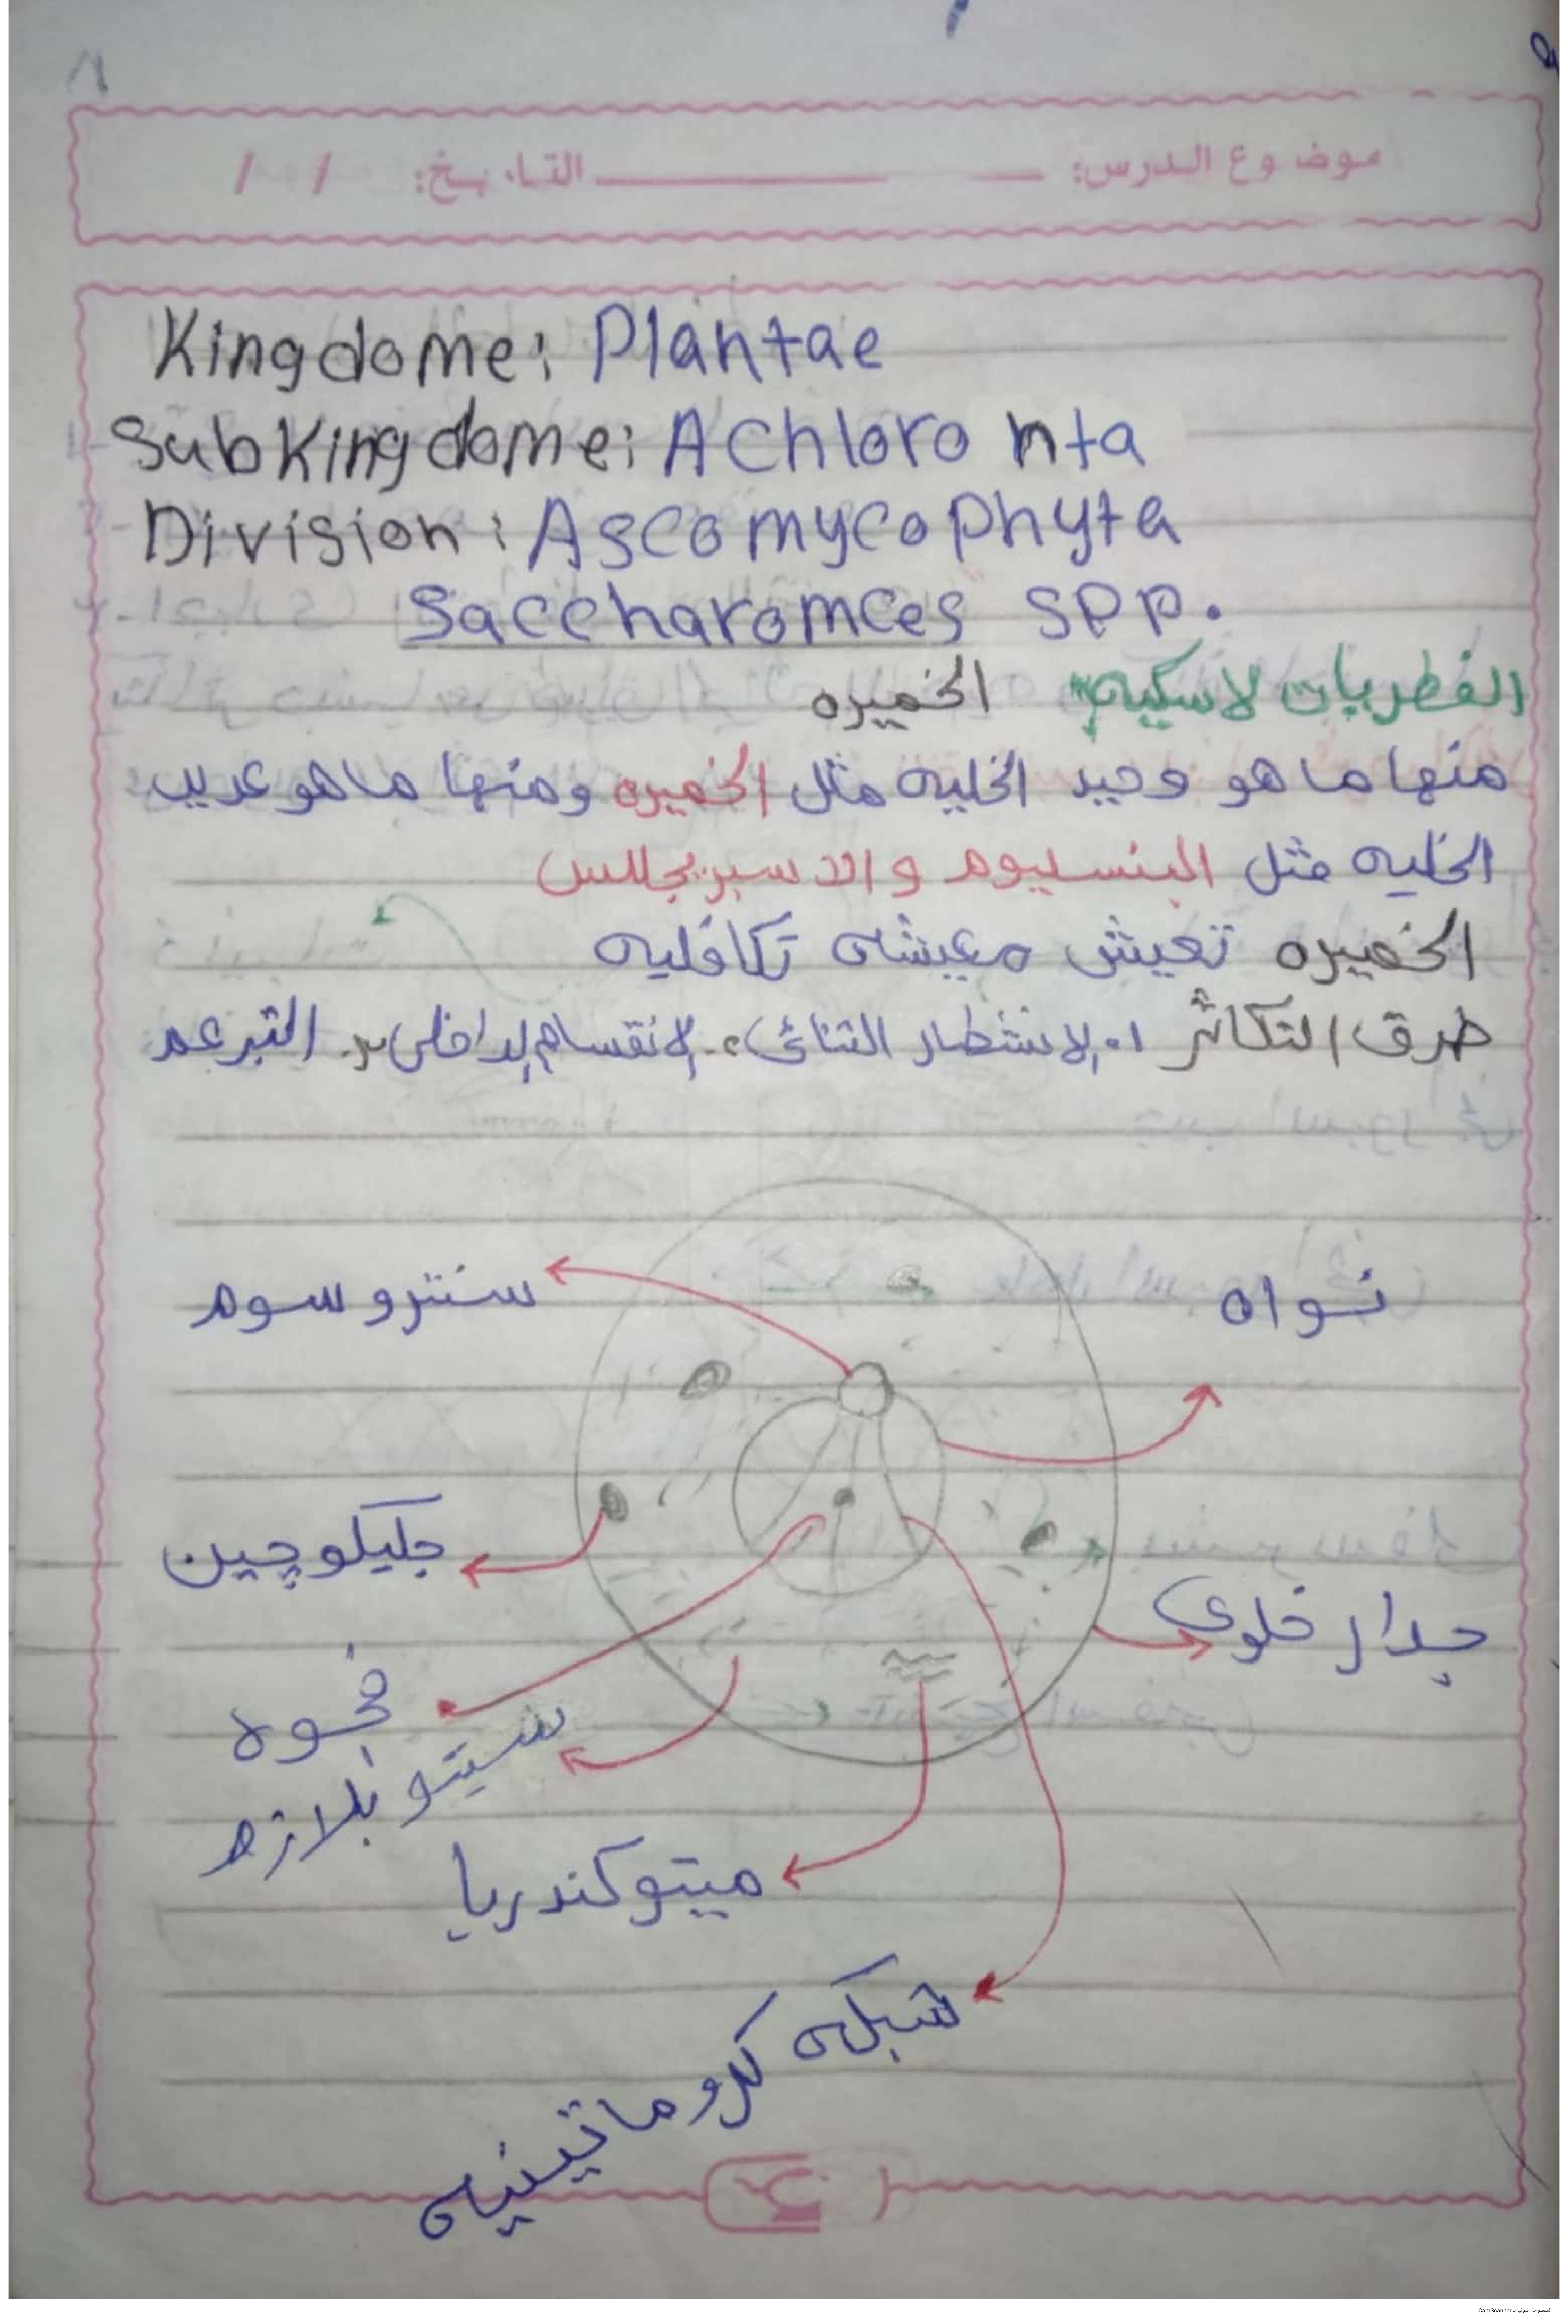 موضوع الدرس: التاريخ: / /
Kingdome: Plantae
SubKingdome: Achloro nta
Division: Ascomycophyta
Saccharomces spp.
الفطريات لاسكيه الخميره
منها ما هو وحيد الخليه مثل الخميره ومنها ما هو عديد
الخليه مثل البنسليوم والاسبرجللس
الخميره تعيش معيشه تكافليه
طرق التكاثر ١. الانشطار الثنائى ٢. الانقسام الداخلى ٣. التبرعم
سنتروسوم
نواه
جليكوجين
جدار خلوى
فجوه
سيتوبلازم
ميتوكندريا
شبكه كروماتينيه
المسوحة ضوئيا بـ CamScanner